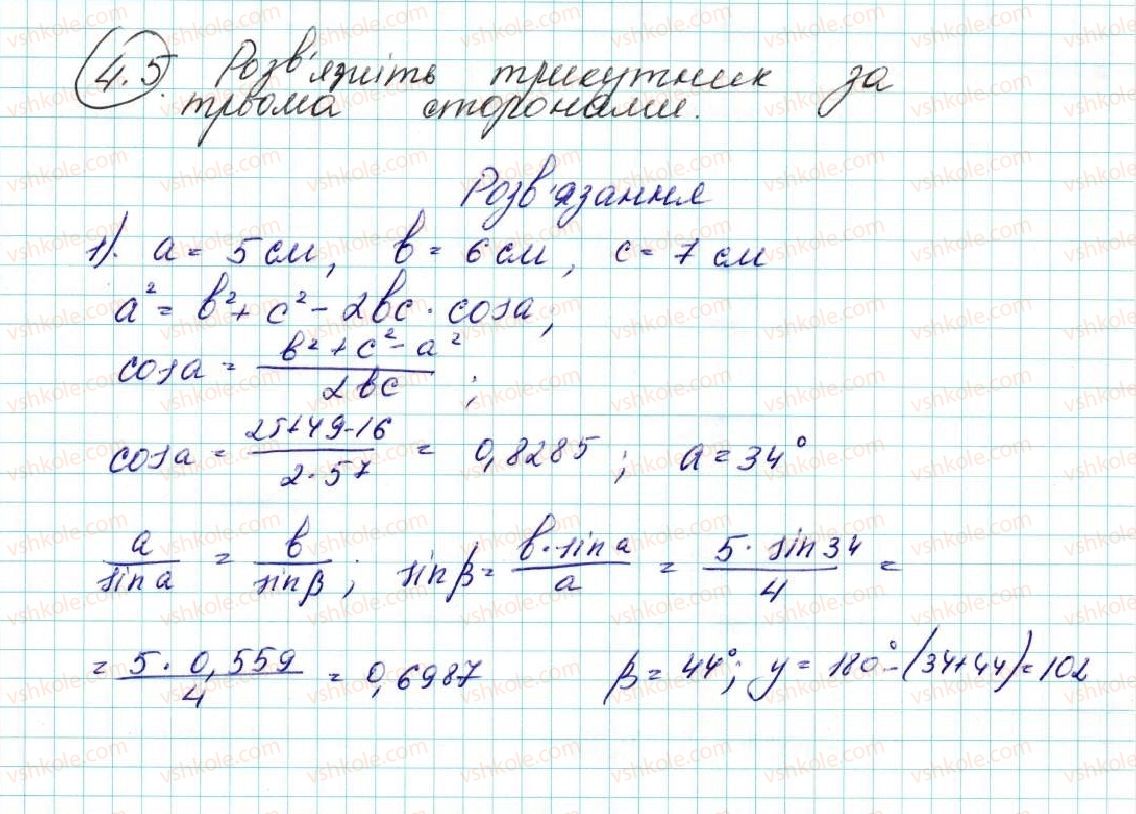 4.5. Розв'яжіть трикутник за
трьома сторонами.
Розв'язання
1). a = 5 см, b = 6 см, c = 7 см
a² = b² + c² - 2bc · cos a;
cos a = (b² + c² - a²) / 2bc ;
cos a = (25+49-16) / (2·57) = 0,8285 ; a = 34°
a / sin a = b / sin β ; sin β = (b · sin a) / a = (5 · sin 34) / 4 =
= (5 · 0,559) / 4 = 0,6987 β = 44°; y = 180° - (34+44) = 102